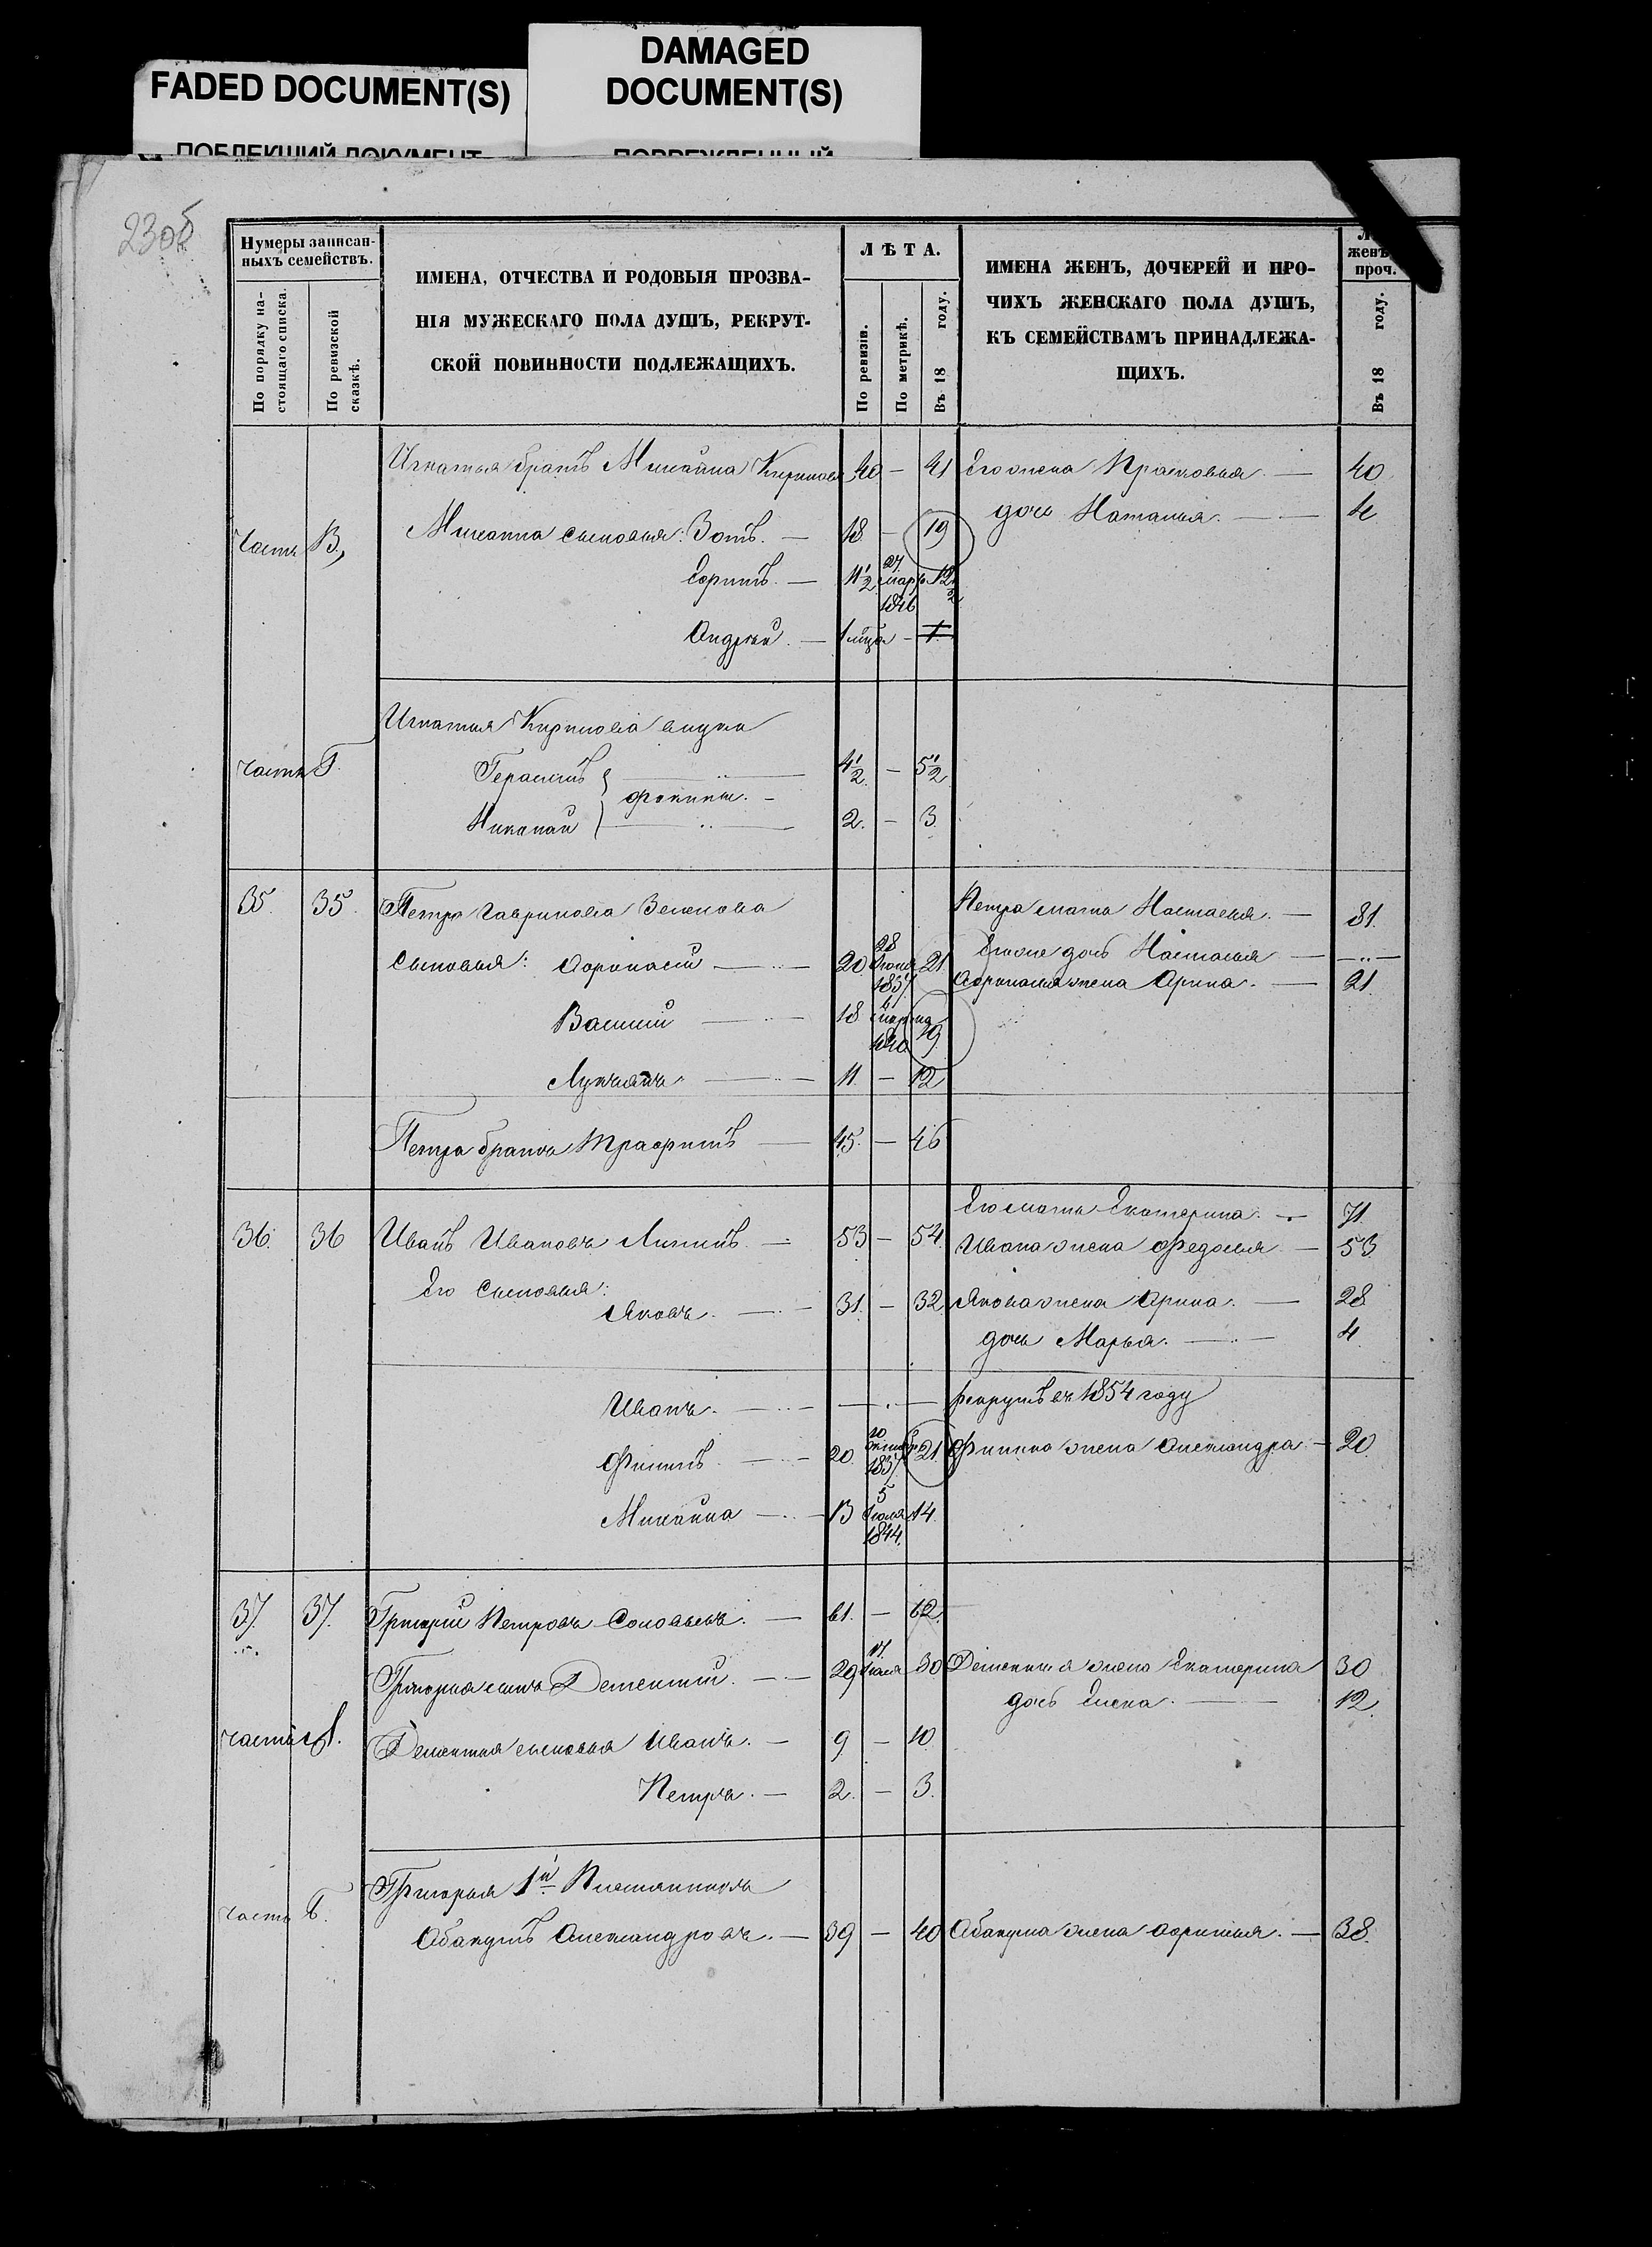 FADED DOCUMENT(S)
DAMAGED
DOCUMENT(S)
ПОБЛЕКШИЙ ДОКУМЕНТ
ПОВРЕЖДЕННЫЙ
23об
Нумеры записан-
ныхъ семействъ.
По порядку на-
стоящаго списка.
По ревизской
сказкѣ.
ИМЕНА, ОТЧЕСТВА И РОДОВЫЯ ПРОЗВА-
НІЯ МУЖЕСКАГО ПОЛА ДУШЪ, РЕКРУТ-
СКОЙ ПОВИННОСТИ ПОДЛЕЖАЩИХЪ.
ЛѢТА.
По ревизіи.
По метрикѣ.
Въ 18 году.
ИМЕНА ЖЕНЪ, ДОЧЕРЕЙ И ПРО-
ЧИХЪ ЖЕНСКАГО ПОЛА ДУШЪ,
КЪ СЕМЕЙСТВАМЪ ПРИНАДЛЕЖА-
ЩИХЪ.
женъ
проч.
Въ 18 году.
Игнатья братъ Михайла Кириловъ 40 — 41 Его жена Прасковья. — 40
дочь Наталья. — 4
часть В, Михаила сыновья: Зотъ. — 18 — 19
Ефимъ. — 11½ 27 мар. 1846 12½
Андрей. — 1 мца — 1
Игнатья Кирилова внуки
часть Г. Герасимъ 4½ — 5½
Фокины. —
Николай 2. — 3.
35. 35. Петра Гаврилова Зеленова Петра мать Настасья. — 81.
Сыновья: Афонасій — 20. 28 Іюня 1837 21 Его же дочь Настасья —
Афонасья жена Арина. — 21
Василій — 18 марта 1840 19
Лукьянъ — 11. — 12
Петра братъ Трафимъ — 45. — 46
Его мать Екатерина. — 71.
36. 36 Иванъ Ивановъ — 53 — 54. Ивана жена Федосья — 53
Его Сыновья:
Яковъ. — 31. — 32 Якова жена Арина. — 28
дочь Марья. — 4.
Иванъ. — рекрутъ въ 1854 году
Филипъ — 20. 10 октябр 1837 21. Филипа жена Александра — 20.
Михайла — 13 5 Іюля 1844. 14.
37. 37. Григорій Петровъ Соловьевъ. — 61. — 62.
Григорья сынъ Дементій. — 29 17 Іюля 30 Дементья жена Екатерина 30
дочь Елена. — 12.
часть А. Дементья сыновья Иванъ. — 9 — 10
Петръ. — 2. — 3.
Григорья 1й Племянникъ
часть Б. Абакумъ Александровъ. — 39 — 40 Абакума жена Афимья. — 38.